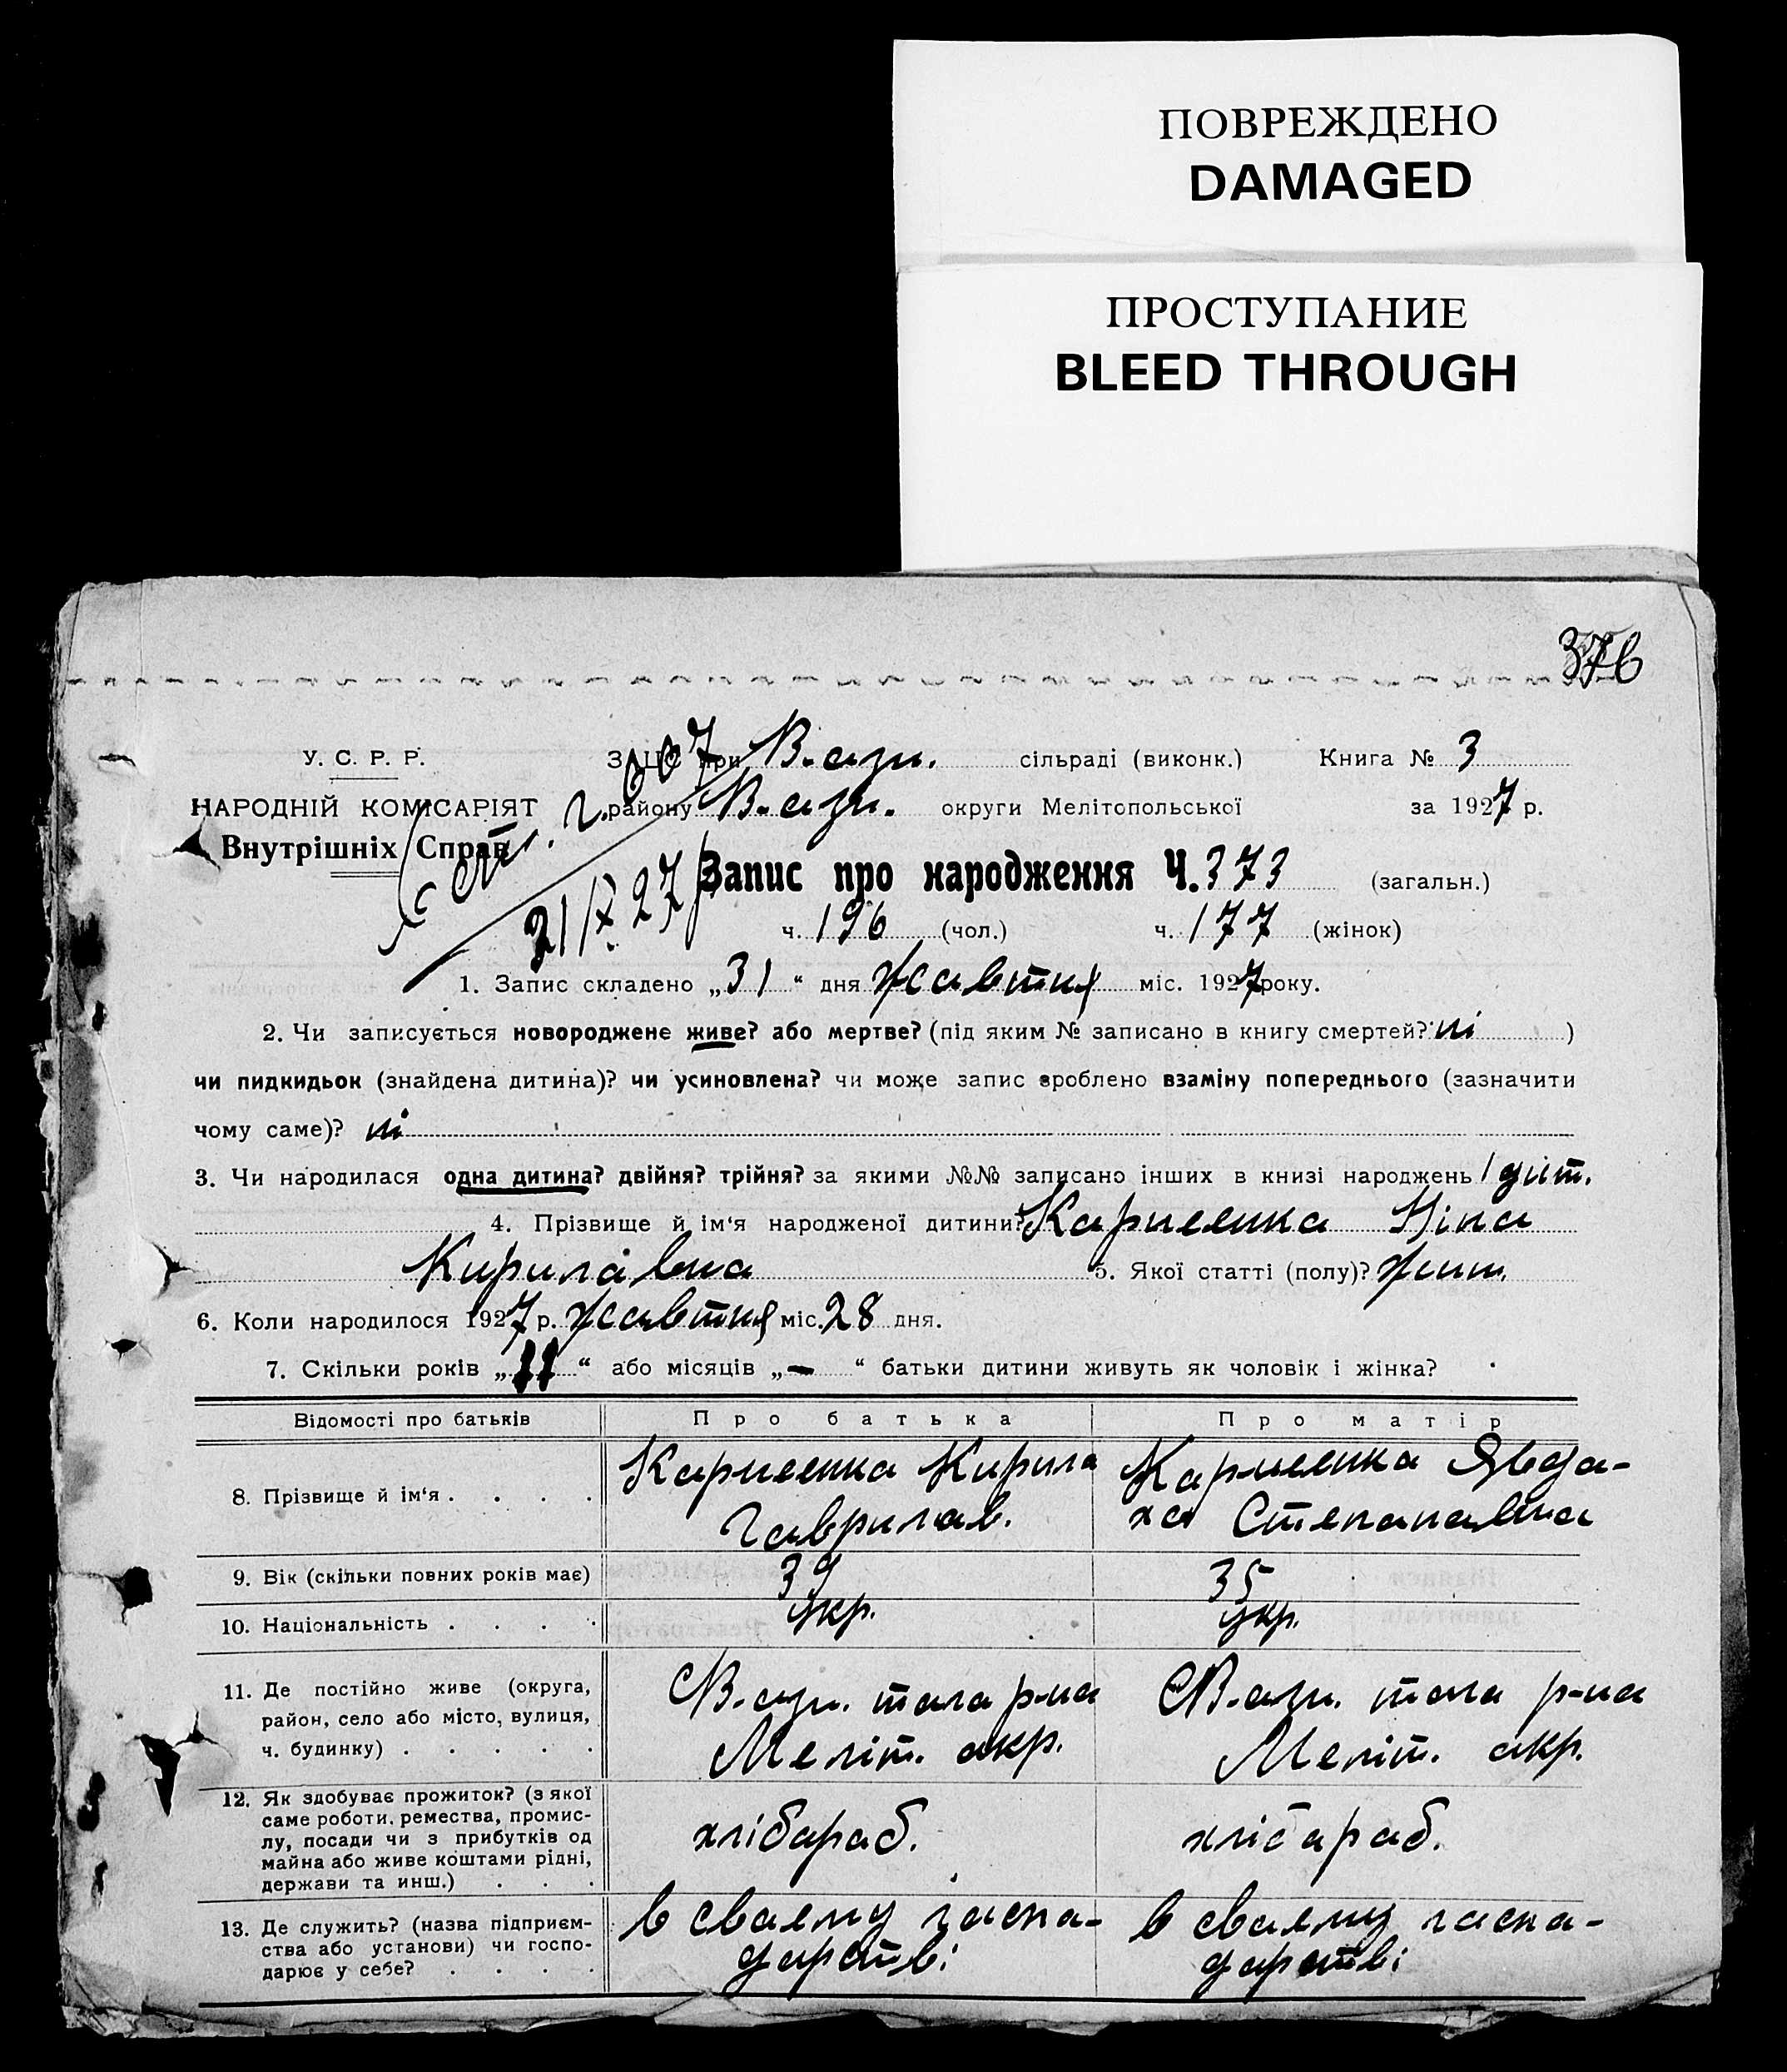 ПОВРЕЖДЕНО
DAMAGED
ПРОСТУПАНИЕ
BLEED THROUGH
376
У. С. Р. Р. ЗАЦС при В.-азн. сільраді (виконк.) Книга № 3
607
НАРОДНІЙ КОМІСАРІЯТ району В.-азн. округи Мелітопольської за 1927 р.
Внутрішніх Справ
21/X 27 Запис про народження Ч. 373 (загальн.)
ч. 196 (чол.) ч. 177 (жінок)
1. Запис складено „31“ дня жовтня міс. 1927 року.
2. Чи записується новороджене живе? або мертве? (під яким № записано в книгу смертей? ні )
чи пидкидьок (знайдена дитина)? чи усиновлена? чи може запис зроблено взаміну попереднього (зазначити
чому саме)? ні
3. Чи народилася одна дитина? двійня? трійня? за якими №№ записано інших в книзі народжень 1 дит.
4. Прізвище й ім‘я народженої дитини? Карпенко Ніна
Кирилівна 5. Якої статті (полу)? жин.
6. Коли народилося 1927 р. жовтня міс. 28 дня.
7. Скільки років „11“ або місяців „—“ батьки дитини живуть як чоловік і жінка?
Відомості про батьків Про батька Про матір
8. Прізвище й ім‘я . . . . Карпенко Кирило Гаврилов. Карпенко Явдоха Степановна
9. Вік (скільки повних років має) 39 35
10. Національність . . . . укр. укр.
11. Де постійно живе (округа, район, село або місто, вулиця, ч. будинку) . . . . . С В.-азн. того р-на Меліт. окр. С В.-азн. того р-на Меліт. окр.
12. Як здобуває прожиток? (з якої саме роботи, ремества, промислу, посади чи з прибутків од майна або живе коштами рідні, держави та инш.) . . . хлібороб. хлібороб.
13. Де служить? (назва підприємства або установи) чи господарює у себе? . . . . в своєму господарстві в своєму господарстві